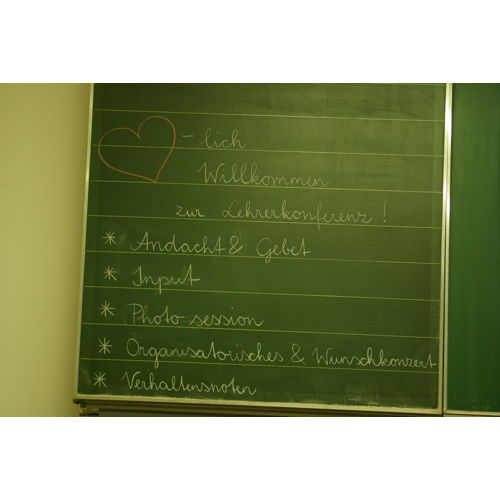 - lich
Willkommen
zur Lehrerkonferenz!
* Andacht & Gebet
* Input
* Photosession
* Organisatorisches & Wunschkonzert
* Verhaltensnoten